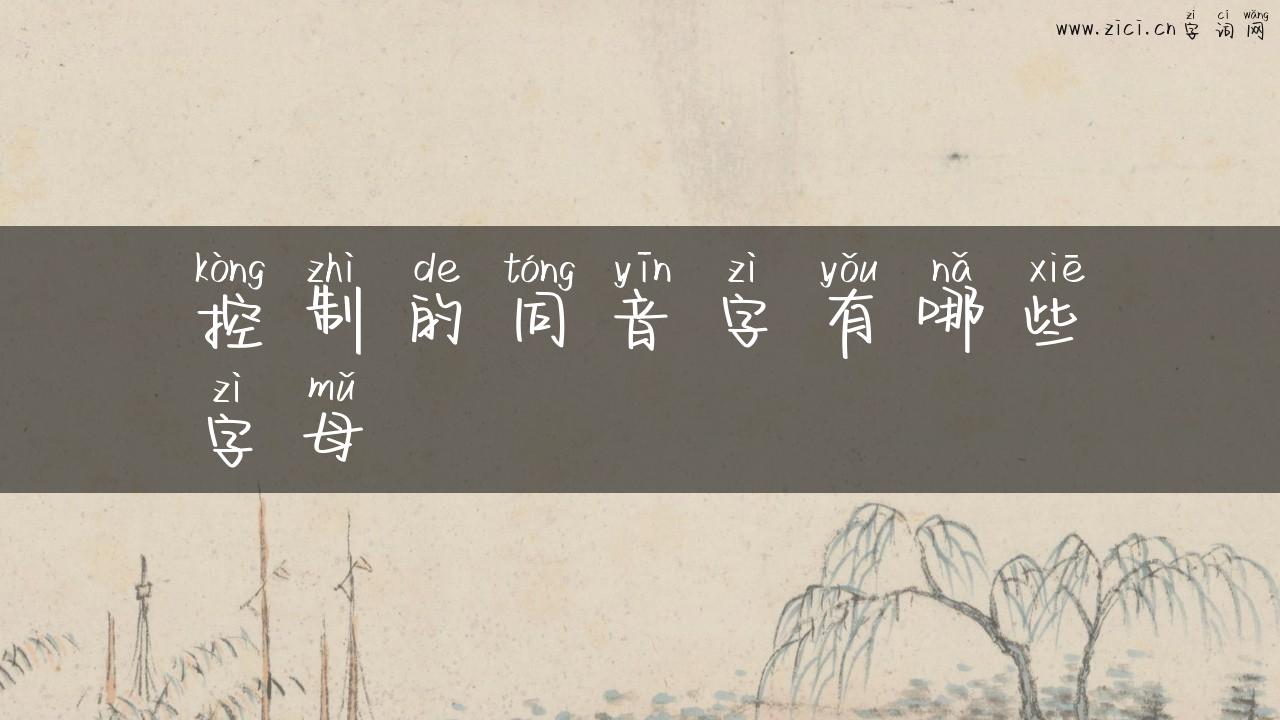 zì cí wǎng
www.zici.cn 字词网
kòng zhì de tóng yīn zì yǒu nǎ xiē
控制的同音字有哪些
zì mǔ
字母